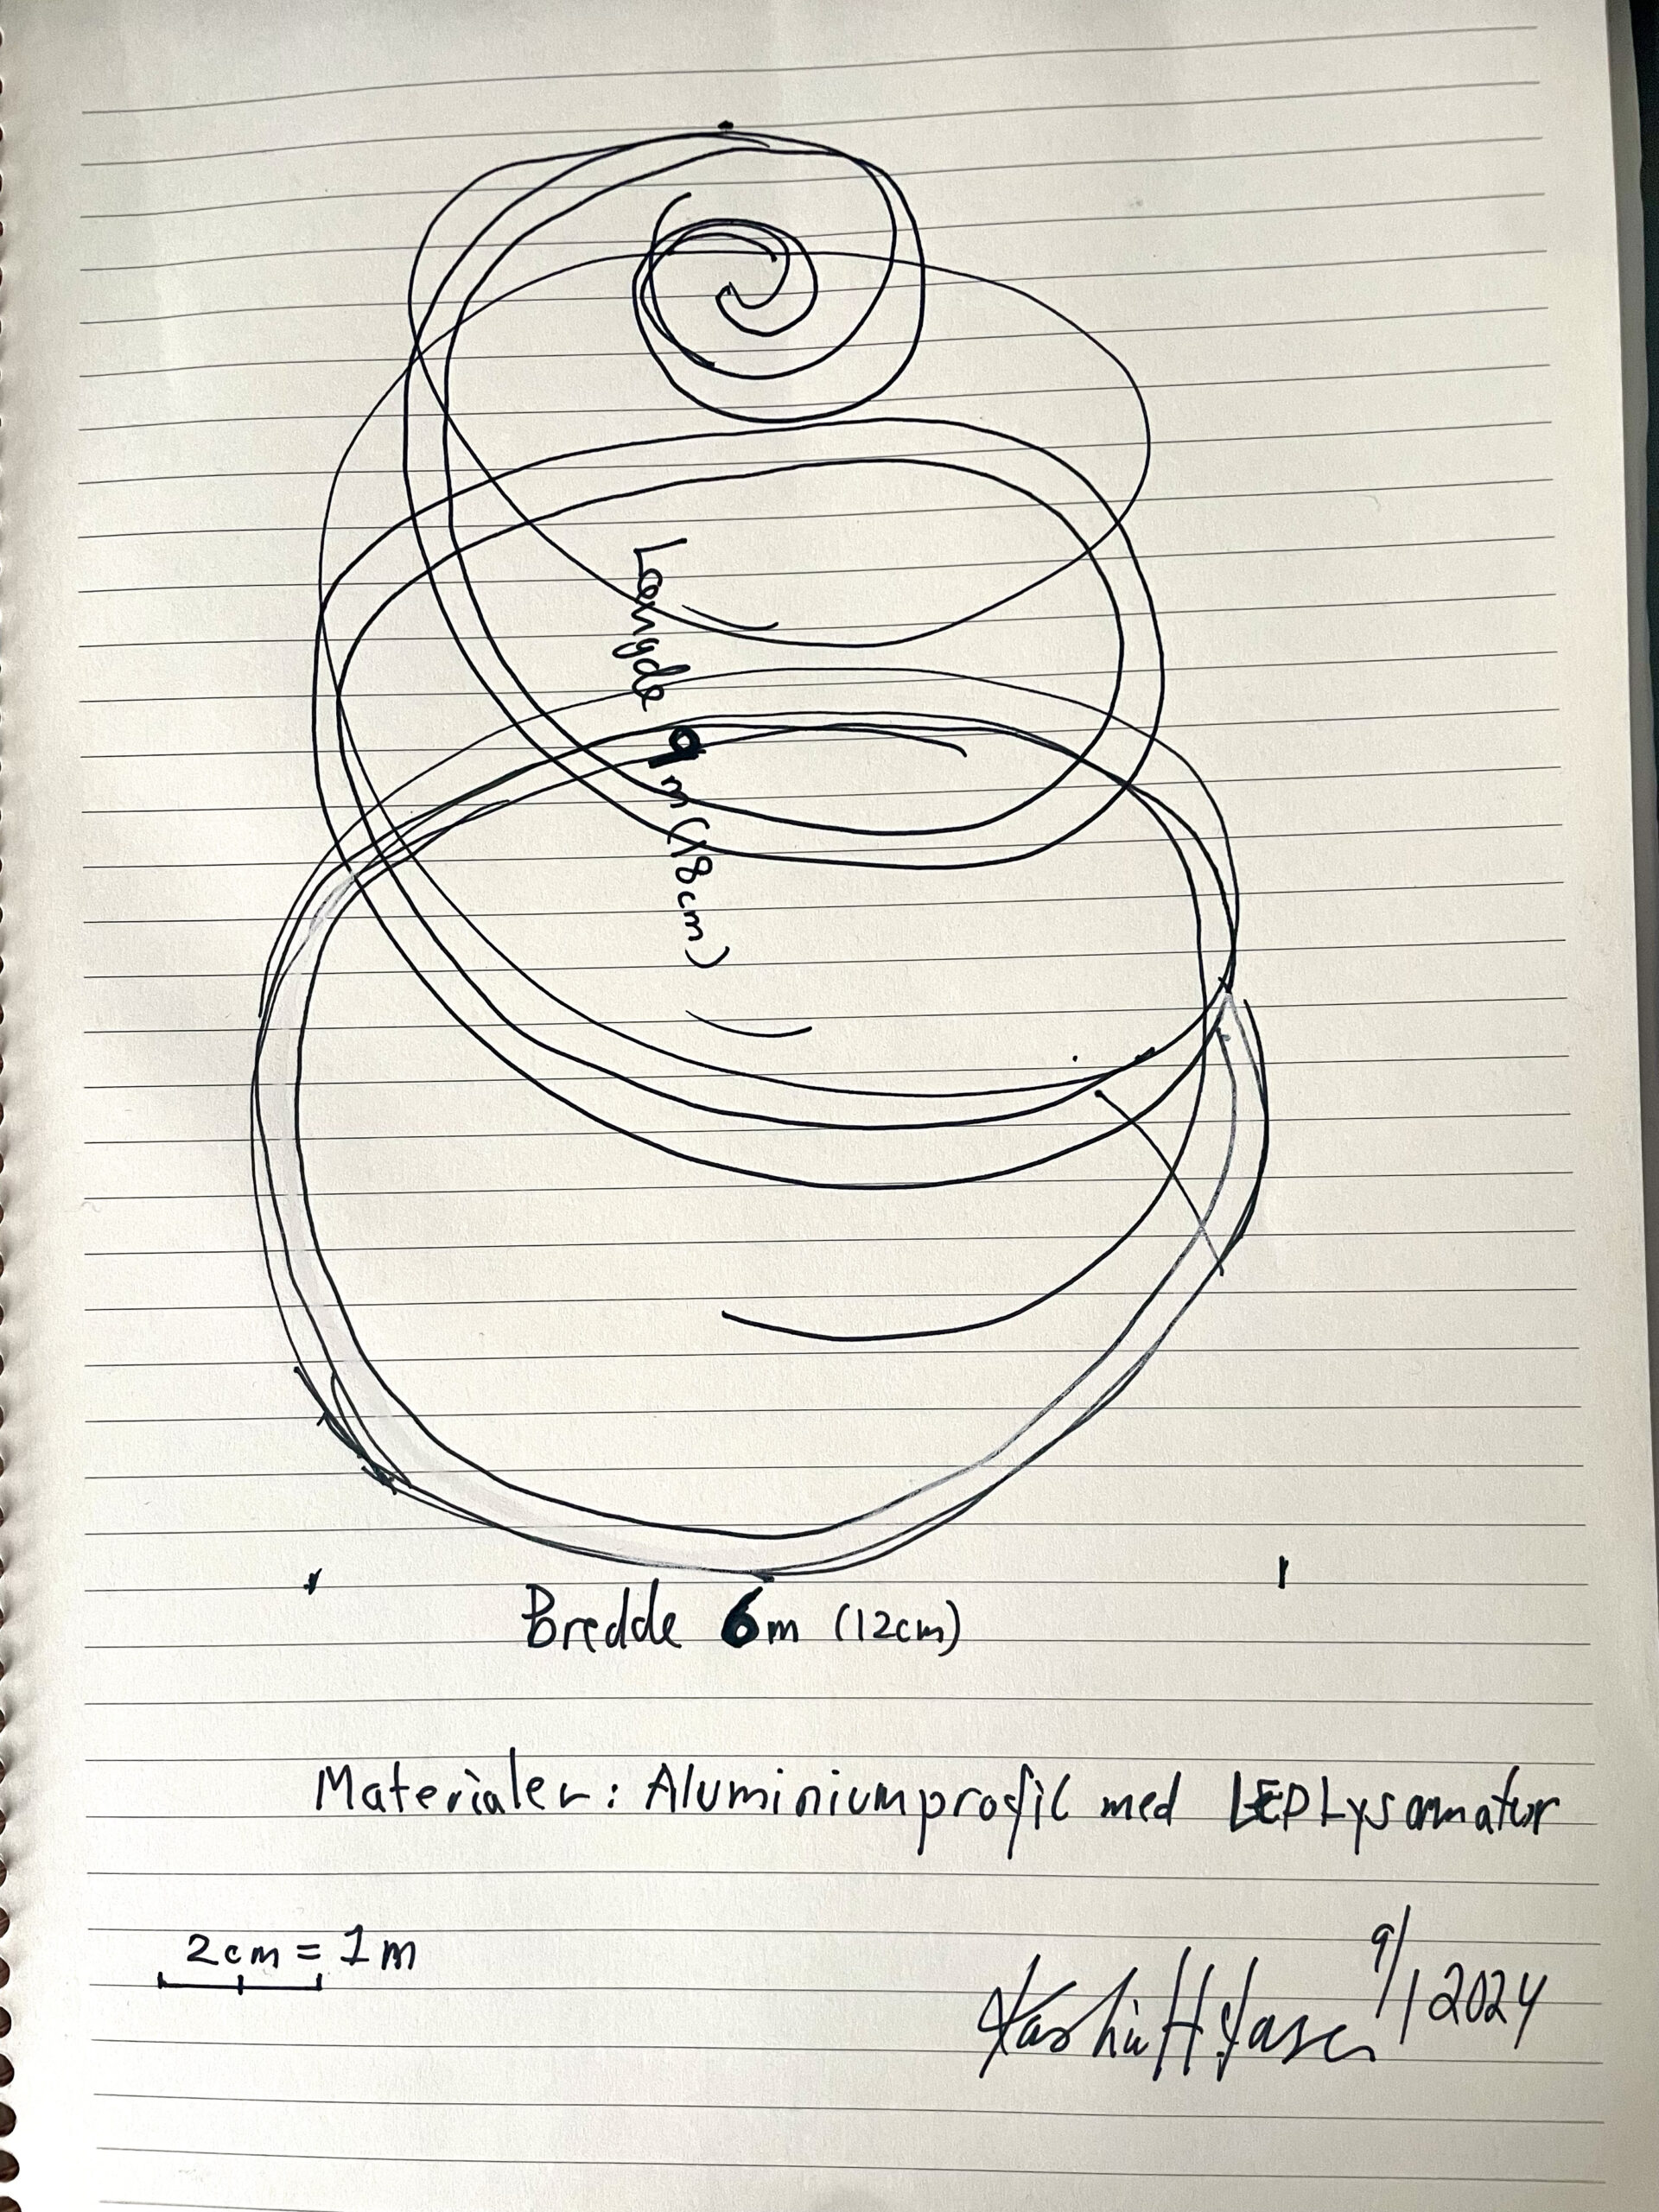 Lengde 9 m (18cm)
Bredde 6m (12cm)
Materialer: Aluminiumprofil med LED Lysarmatur
2cm = 1m
9/1 2024